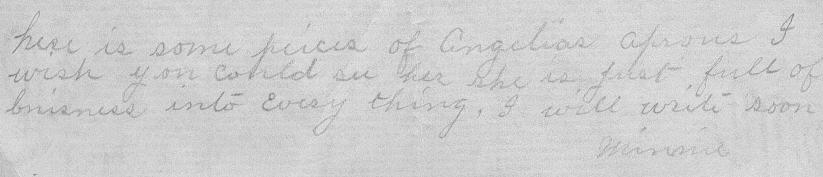 here is some peices of Angelias aprons I
wish you could see her she is just full of
buisness into every thing, I will write soon
Minnie